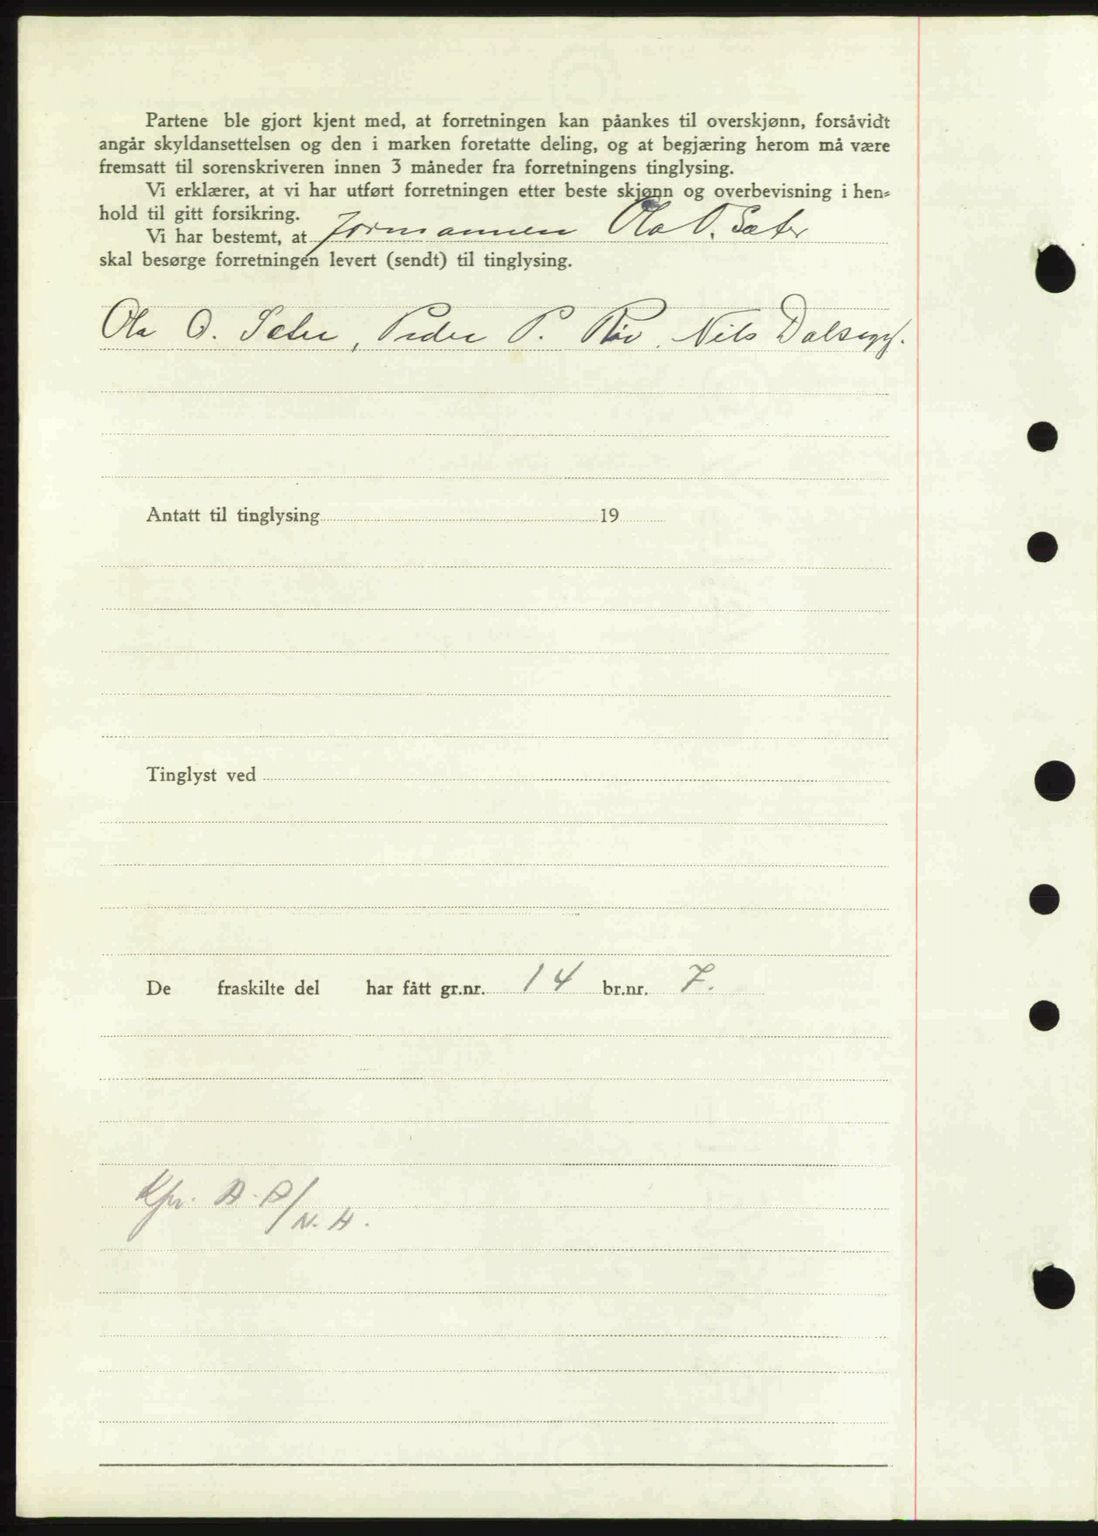 Partene ble gjort kjent med, at forretningen kan påankes til overskjønn, forsåvidt
angår skyldansettelsen og den i marken foretatte deling, og at begjæring herom må være
fremsatt til sorenskriveren innen 3 måneder fra forretningens tinglysing.
Vi erklærer, at vi har utført forretningen etter beste skjønn og overbevisning i hen=
hold til gitt forsikring.
Vi har bestemt, at formannen Ola O. Sæter
skal besørge forretningen levert (sendt) til tinglysing.
Ola O. Sæter, Peder P. Røv. Nils Dalsegg.
Antatt til tinglysing 19
Tinglyst ved
De fraskilte del har fått gr.nr. 14 br.nr. 7.
N. H.